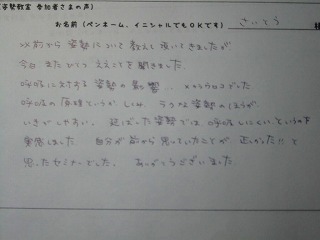 (姿勢教室 参加者さまの声)
お名前(ペンネーム、イニシャルでもOKです) さいとう
以前から 姿勢について 教えて頂いてきましたが
今日 またひとつ ええことを聞きました。
呼吸に対する 姿勢の影響、、 メカラウロコでした
呼吸の原理というか しくみ、ラクな姿勢のほうが
いきがしやすい、延ばした姿勢では、呼吸しにくい、というのを
実感しました 自分が前から思っていたことが 正しかった!!と
思ったセミナーでした。 ありがとうございました